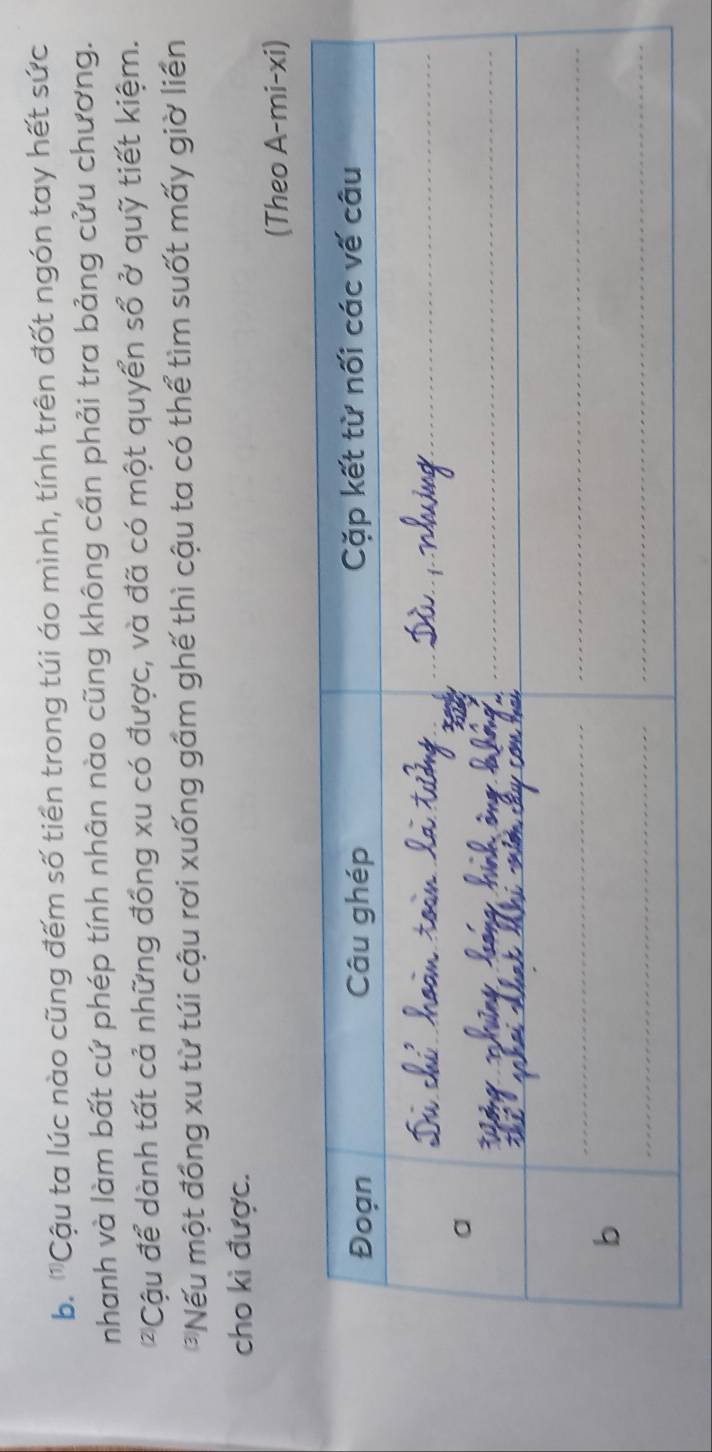 b. ⁽¹⁾Cậu ta lúc nào cũng đếm số tiền trong túi áo mình, tính trên đốt ngón tay hết sức
nhanh và làm bất cứ phép tính nhân nào cũng không cần phải tra bảng cửu chương.
⁽²⁾Cậu để dành tất cả những đồng xu có được, và đã có một quyển sổ ở quỹ tiết kiệm.
⁽³⁾Nếu một đồng xu từ túi cậu rơi xuống gầm ghế thì cậu ta có thể tìm suốt mấy giờ liền
cho kì được.
(Theo A-mi-xi)
Đoạn Câu ghép Cặp kết từ nối các vế câu
a
Dù chỉ hoàn toàn là tưởng
tượng nhưng hình ông
thế phải khi con
Dù, nhưng
b